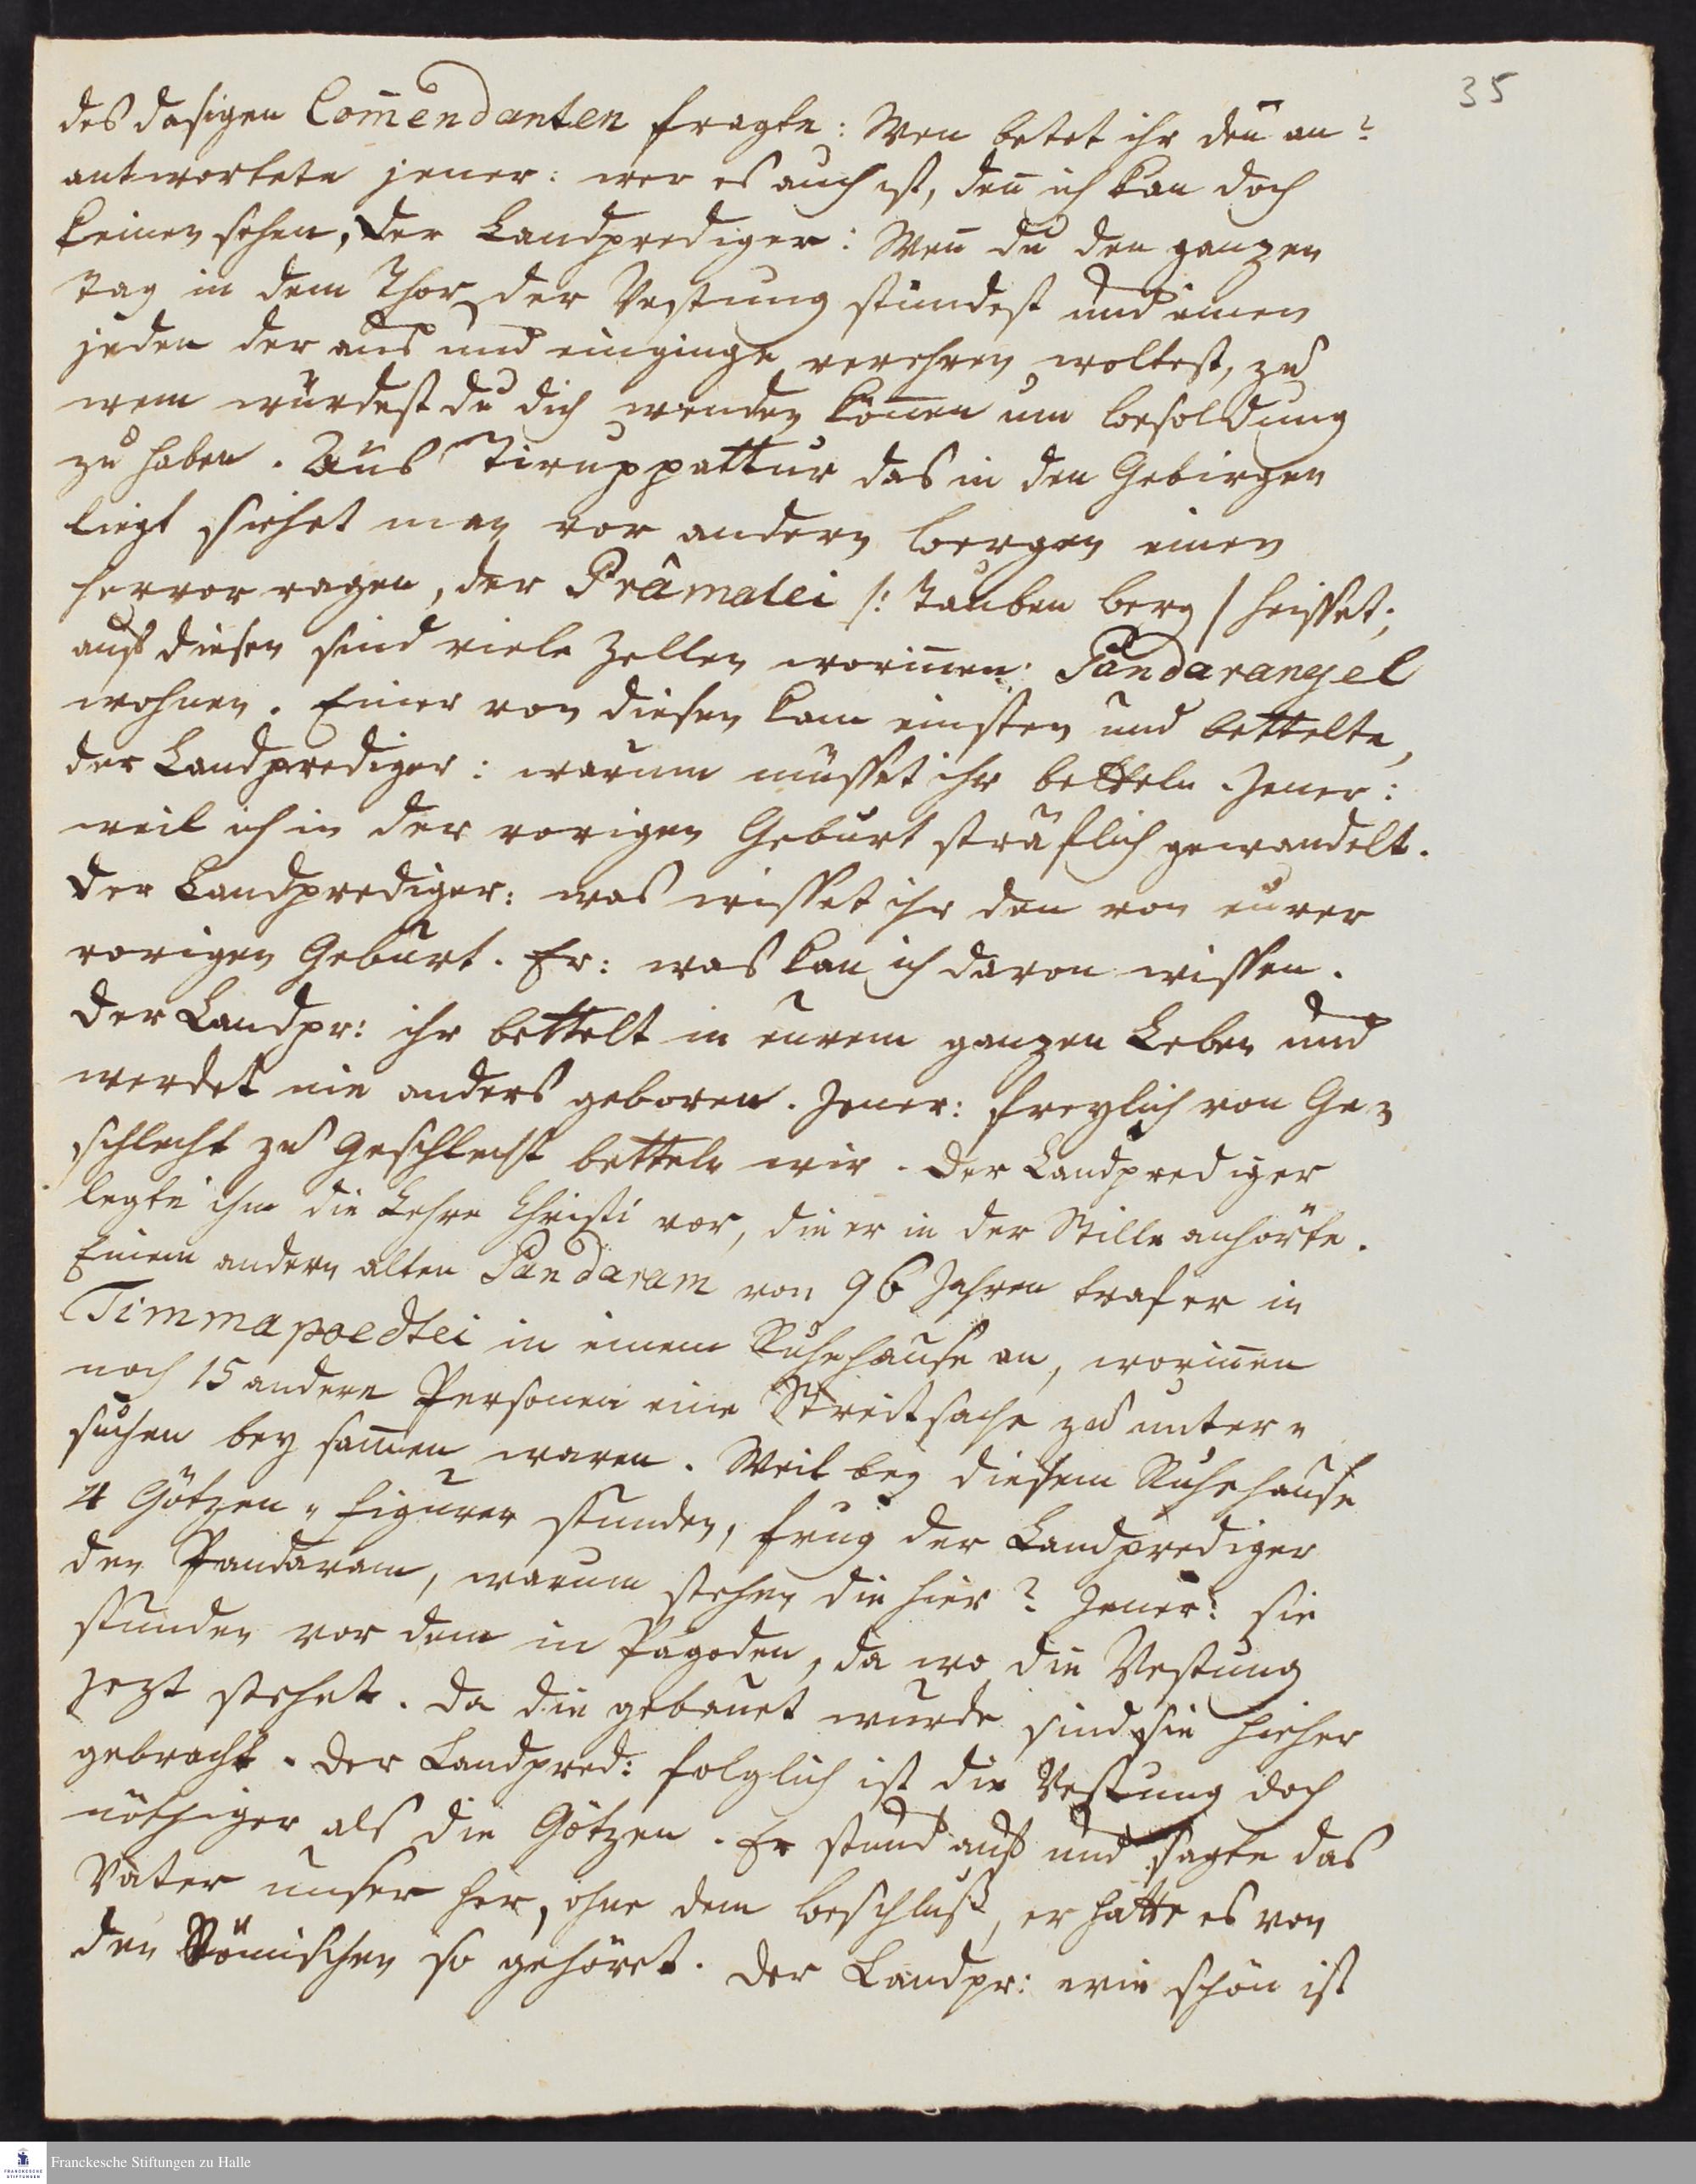 35
des dasigen Com̄endanten fragte: Wen betet ihr den̄ an?
antwortete jener: wer es auch ist, den̄ ich kan doch
keinen sehen, der Landprediger: Wen̄ du den ganzen
Tag in dem Thor der Vestung stündest und einen
jeden der aus und einginge verehren woltest, zu
wem würdest du dich wenden kön̄en um besoldung
zu haben. Aus Tiruppattur das in den Gebirgen
liegt siehet man vor andern bergen einen
hervor ragen, der Prâmalei /: Tauben berg / heisset;
auf diesen sind viele Zellen worin̄en Pandarangel
wohnen. Einer von diesen kam einsten und bettelte,
der Landprediger: warum müsset ihr betteln. Jener:
weil ich in der vorigen Geburt sträflich gewandelt.
Der Landprediger: was wisset ihr den von eurer
vorigen Geburt. Er: was kan ich davon wissen.
Der Landpr: ihr bettelt in eurem ganzen Leben und
werdet nie anders geboren. Jener: freylich von Ge-
schlecht zu Geschlecht betteln wir. Der Landprediger
legte ihm die Lehre Christi vor, die er in der Stille anhörte.
Einem andern alten Pandaram von 96 Jahren traf er in
Timmapoedtei in einem Ruhehause an, worin̄en
noch 15 andere Personen eine Streitsache zu unter-
suchen bey sam̄en waren. Weil bey diesem Ruhehause
4 Götzen-figuren stunden, frug der Landprediger
den Pandaram, warum stehen die hier? Jener: sie
stunden vor dem in Pagoden, da wo die Vestung
jezt stehet. Da die gebauet wurde sind sie hieher
gebracht. Der Landpred: folglich ist die Vestung doch
nöthiger als die Götzen. Er stund auf und sagte das
Vater unser her, ohne dem beschluß, er hatte es von
den Römischen so gehöret. Der Landpr: wie schön ist
Franckesche Stiftungen zu Halle